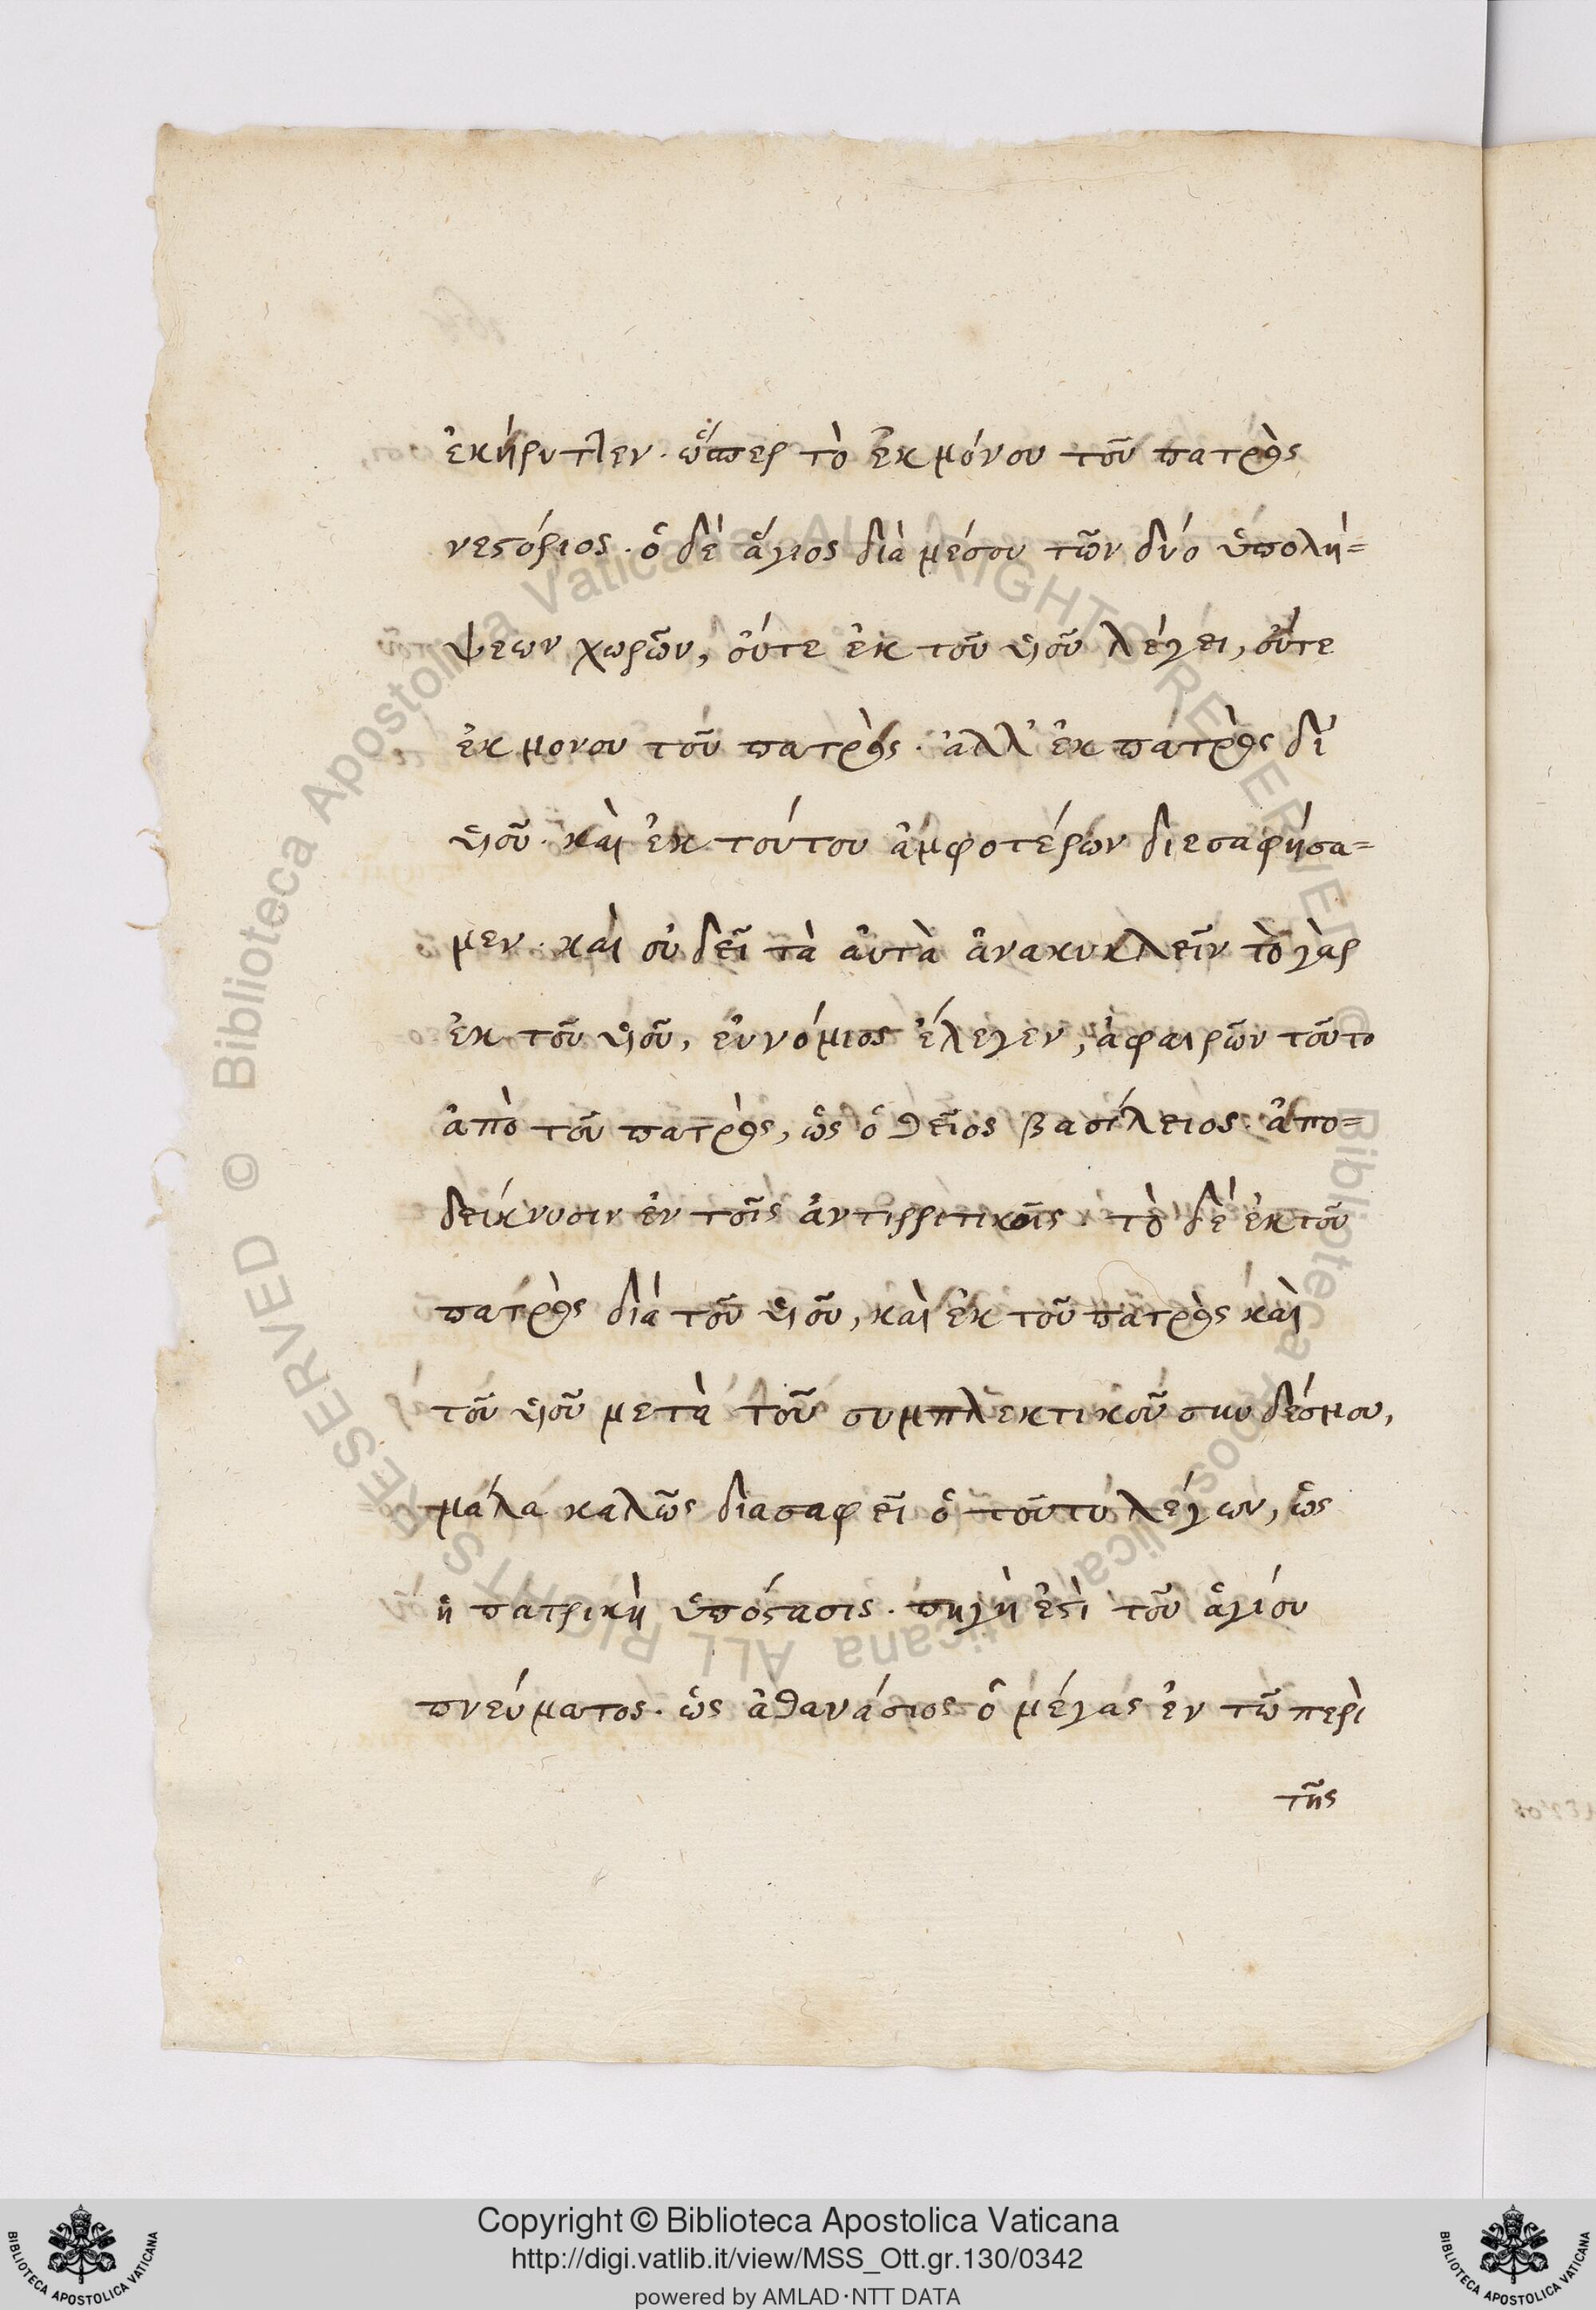 ἐκήρυτλεν· ὥσπερ τὸ ἐκ μόνου τοῦ πατρὸς
νεστόριος· ὁ δὲ ἅγιος διὰ μέσου τῶν δύο ὑπολή=
ψεων χωρῶν, οὔτε ἐκ τοῦ υἱοῦ λέγει, οὔτε
ἐκ μονου τοῦ πατρὸς· ἀλλ' ἐκ πατρὸς δι'
υἱοῦ· καὶ ἐκ τούτου ἀμφοτέρων διεσαφήσα=
μεν· καὶ οὐ δεῖ τὰ αὐτὰ ἀνακυκλεῖν τὸ γὰρ
ἐκ τοῦ υἱοῦ, εὐνόμιος ἔλεγεν, ἀφαιρῶν τοῦτο
ἀπὸ τοῦ πατρὸς, ὡς ὁ θεῖος βασίλειος ἀπο=
δείκνυσιν ἐν τοῖς ἀντιρριτικοῖς· τὸ δὲ ἐκ τοῦ
πατρὸς διὰ τοῦ υἱοῦ, καὶ ἐκ τοῦ πατρὸς καὶ
τοῦ υἱοῦ μετὰ τοῦ συμπλεκτικοῦ συνδέσμου,
μάλα καλῶς διασαφεῖ ὁ τοῦτο λέγων, ὡς
ἡ πατρικὴ ὑπόστασις· πηγὴ ἐστὶ τοῦ ἁγίου
πνεύματος· ὡς ἀθανάσιος ὁ μέγας ἐν τῶ περὶ
τῆς
Biblioteca Apostolica Vaticana ALL RIGHTS RESERVED ©
Biblioteca Apostolica Vaticana ALL RIGHTS RESERVED ©
Copyright © Biblioteca Apostolica Vaticana
http://digi.vatlib.it/view/MSS_Ott.gr.130/0342
powered by AMLAD·NTT DATA
BIBLIOTECA APOSTOLICA VATICANA
BIBLIOTECA APOSTOLICA VATICANA